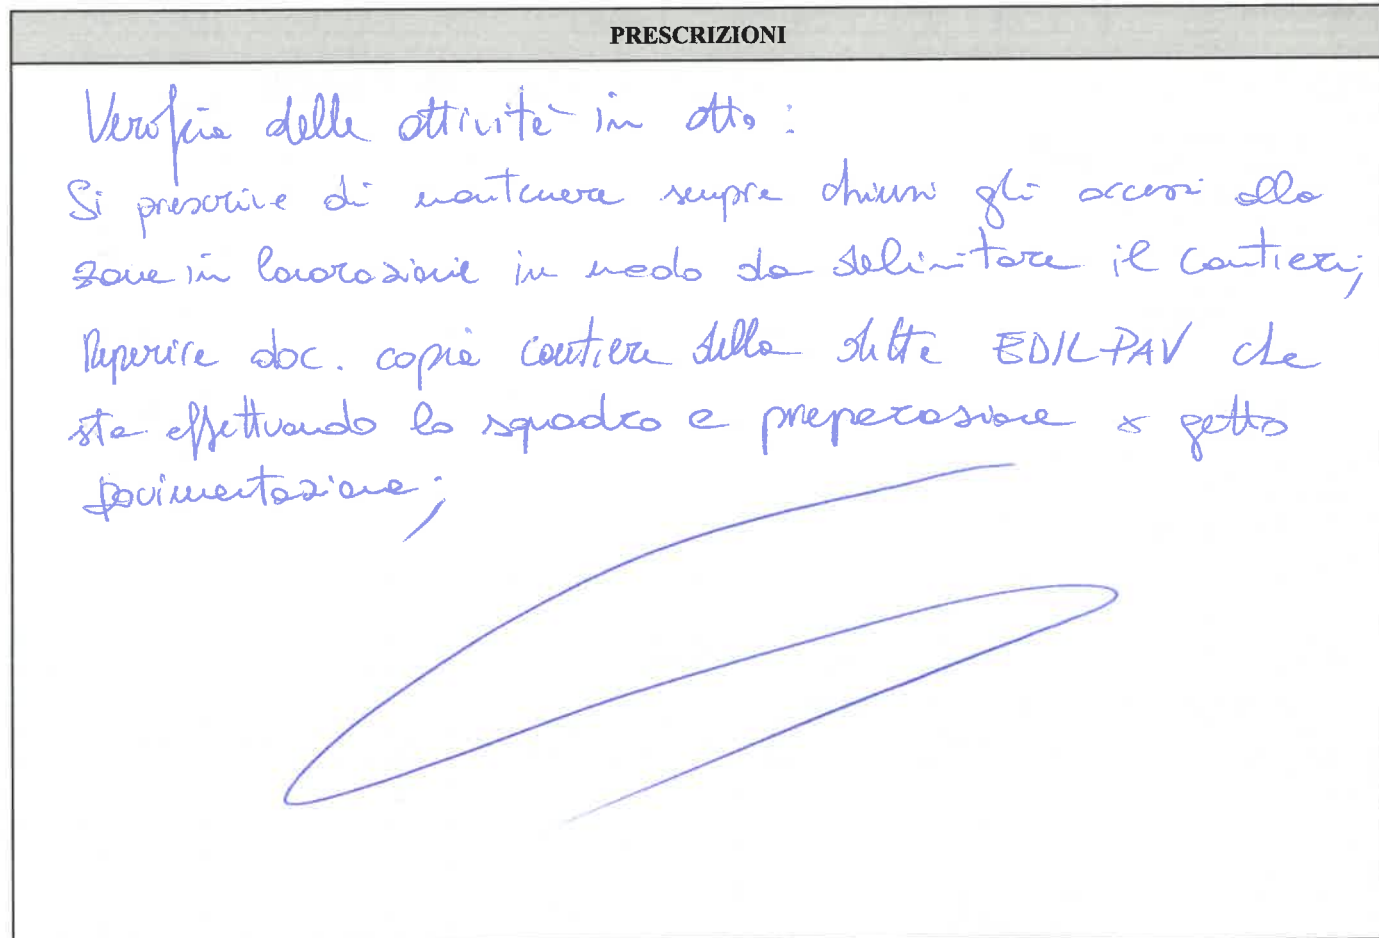 PRESCRIZIONI
Verifica delle attività in atto :
Si prescrive di mantenere sempre chiusi gli accessi alla
zone in lavorazione in modo da delimitare il cantiere;
Reperire doc. copia cantiere della ditta EDIL-PAV che
sta effettuando lo squadro e preparazione x getto
pavimentazione;